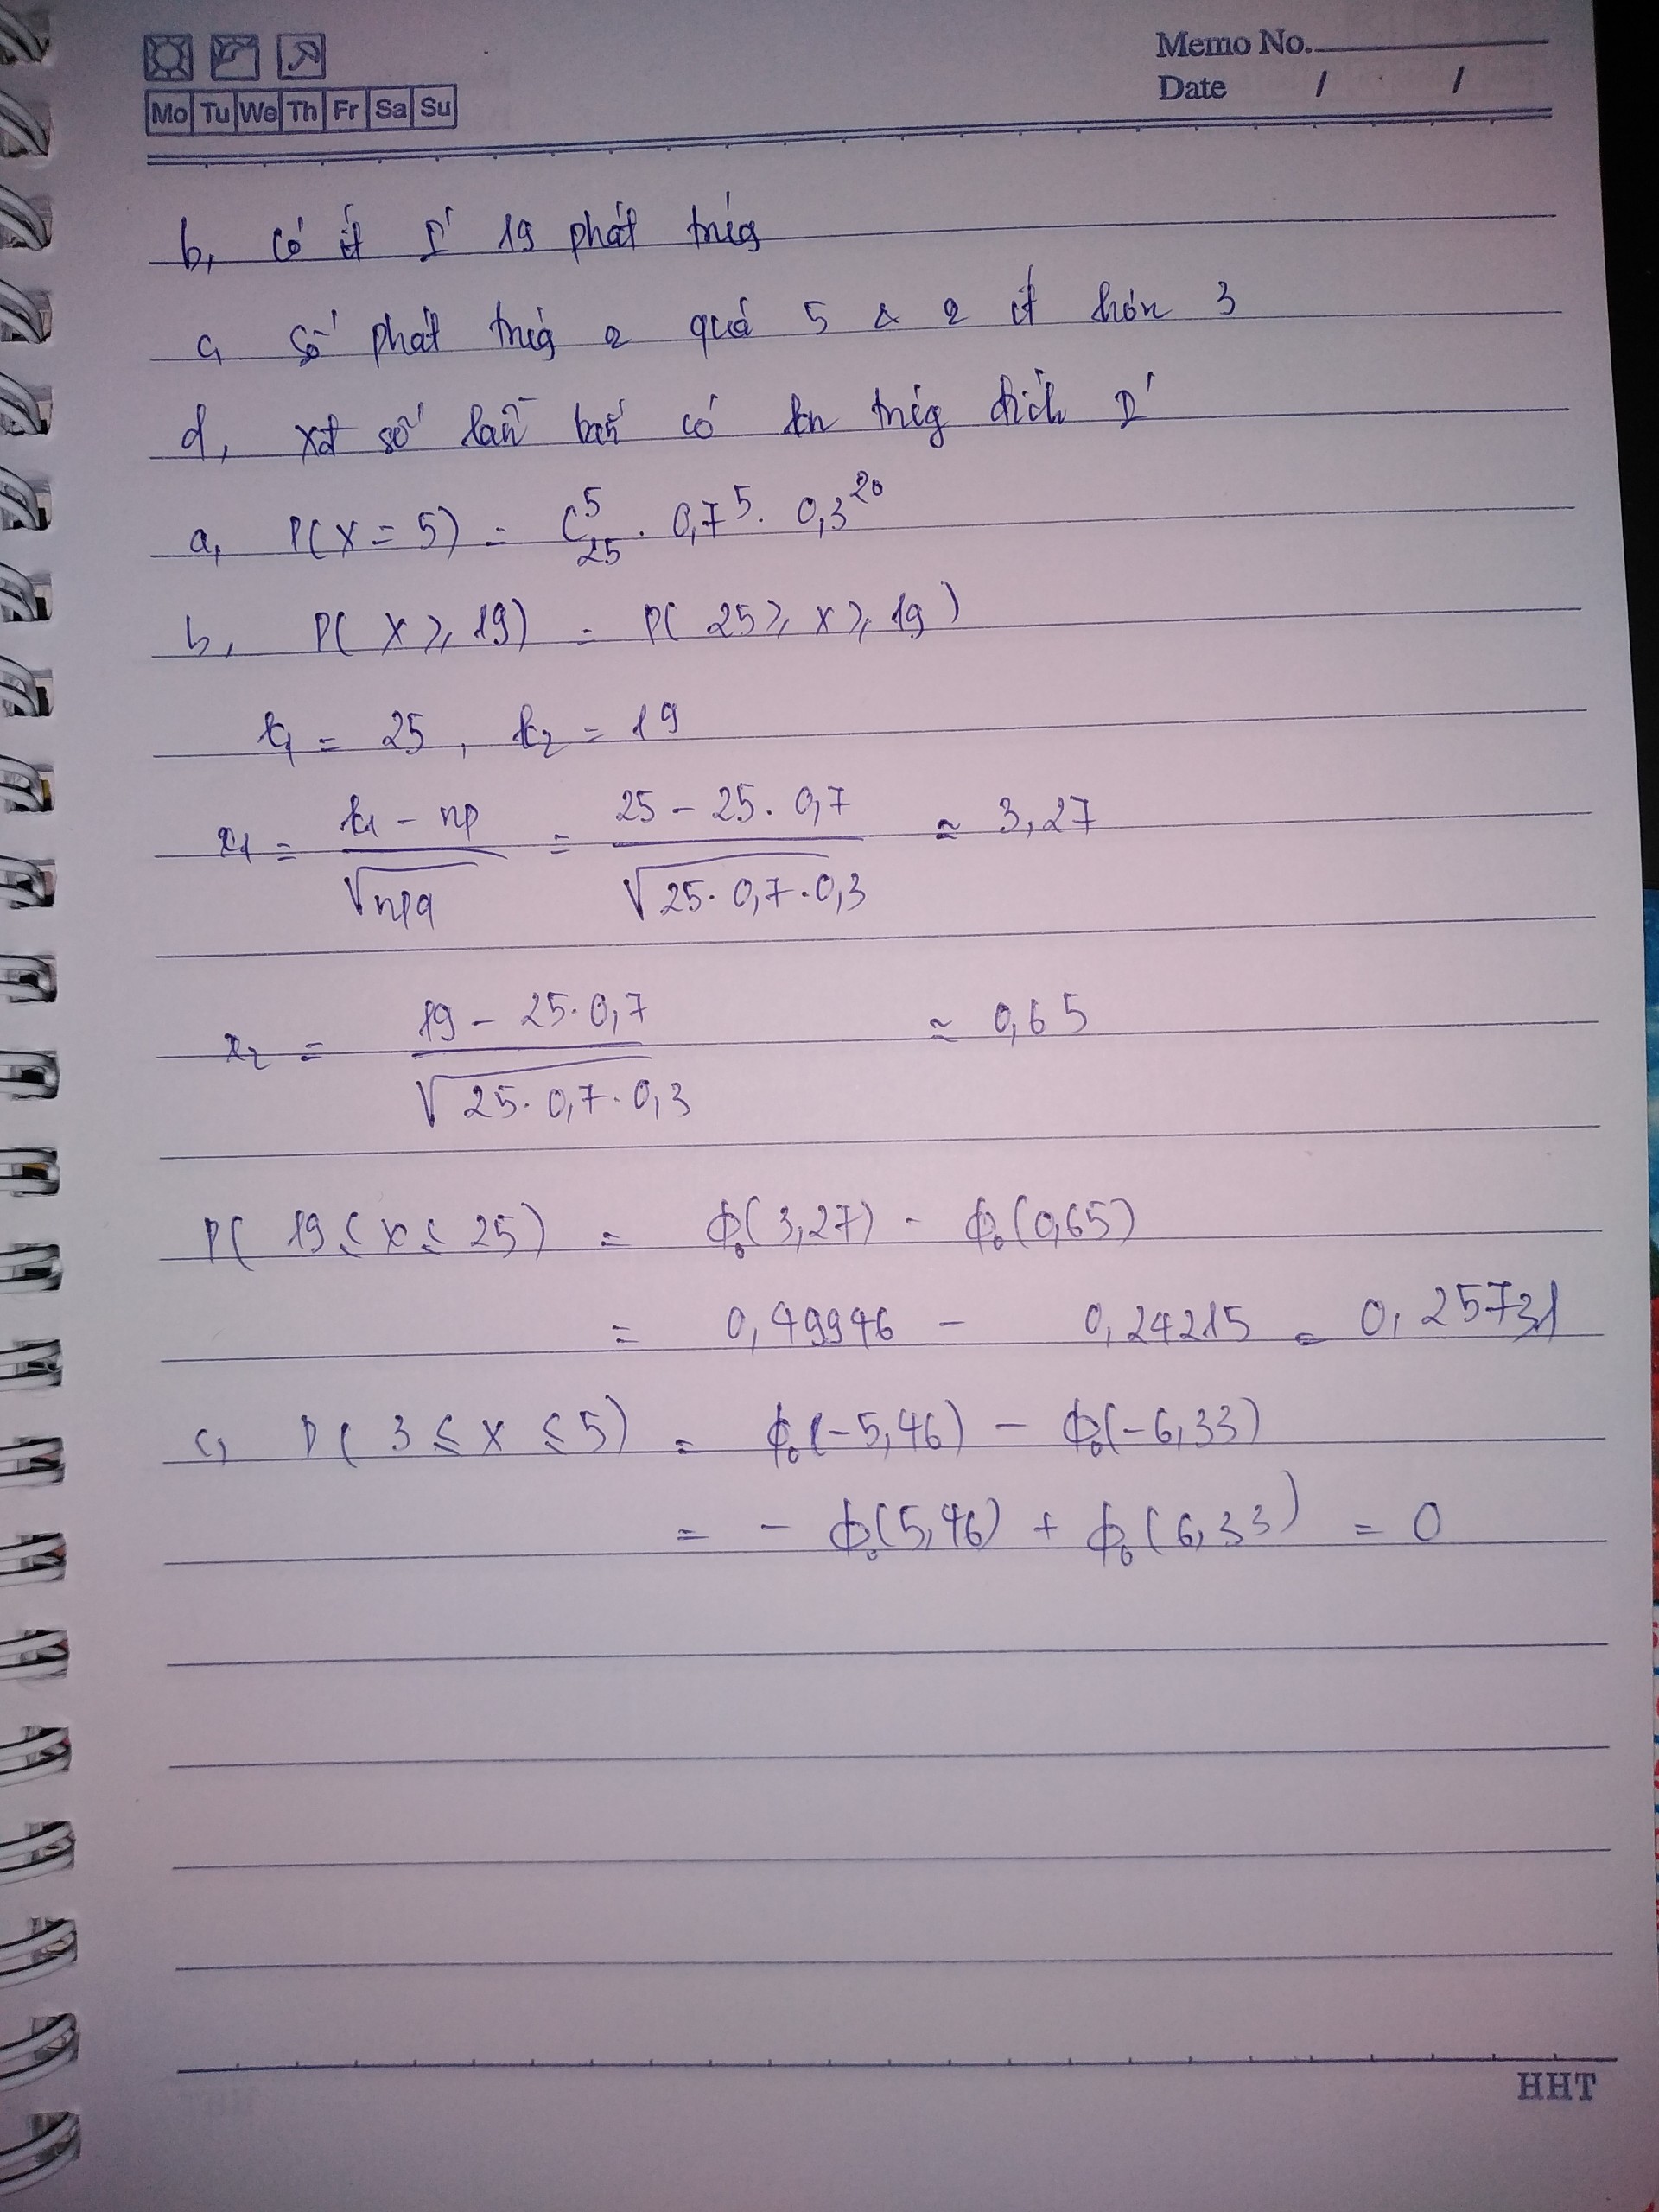 Memo No.
Date / /
Mo Tu We Th Fr Sa Su
b, Có ít I' 19 phát trúg
c, Số phát trúg o quá 5 & o ít hơn 3
d, xđ số lần bắn có kn trúg đích I'
a, P(X = 5) = C₂₅⁵ . 0,7⁵ . 0,3²⁰
b, P( X ≥ 19) = P( 25 ≥ X ≥ 19 )
k₁ = 25 , k₂ = 19
x₁ = (k₁ - np) / √npq = (25 - 25. 0,7) / √25. 0,7 . 0,3 ≈ 3,27
x₂ = (19 - 25. 0,7) / √25. 0,7 . 0,3 ≈ 0,65
P( 19 ≤ X ≤ 25) = ϕ₀(3,27) - ϕ₀(0,65)
= 0,49946 - 0,24215 = 0,25731
c, P( 3 ≤ X ≤ 5) = ϕ₀(-5,46) - ϕ₀(-6,33)
= - ϕ₀(5,46) + ϕ₀(6,33) = 0
HHT